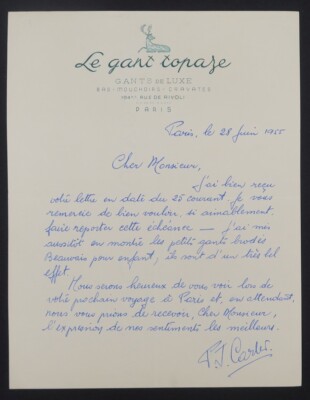 Le gant topaze
GANTS DE LUXE
BAS - MOUCHOIRS - CRAVATES
RUE DE RIVOLI
PARIS
Paris, le 28 Juin 1955
Cher Monsieur,
J'ai bien reçu
votre lettre en date du 25 courant. Je vous
remercie de bien vouloir, si aimablement,
faire reporter cette échéance — J'ai mis
aussitôt en montre les petits gants brodés
Beauvais pour enfant, ils sont d'un très bel
effet.
Nous serons heureux de vous voir lors de
votre prochain voyage à Paris et, en attendant,
nous vous prions de recevoir, Cher Monsieur,
l'expression de nos sentiments les meilleurs.